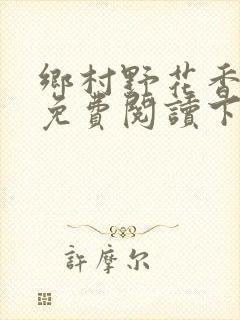 鄉村野花香
免費閱讀下
許摩尔